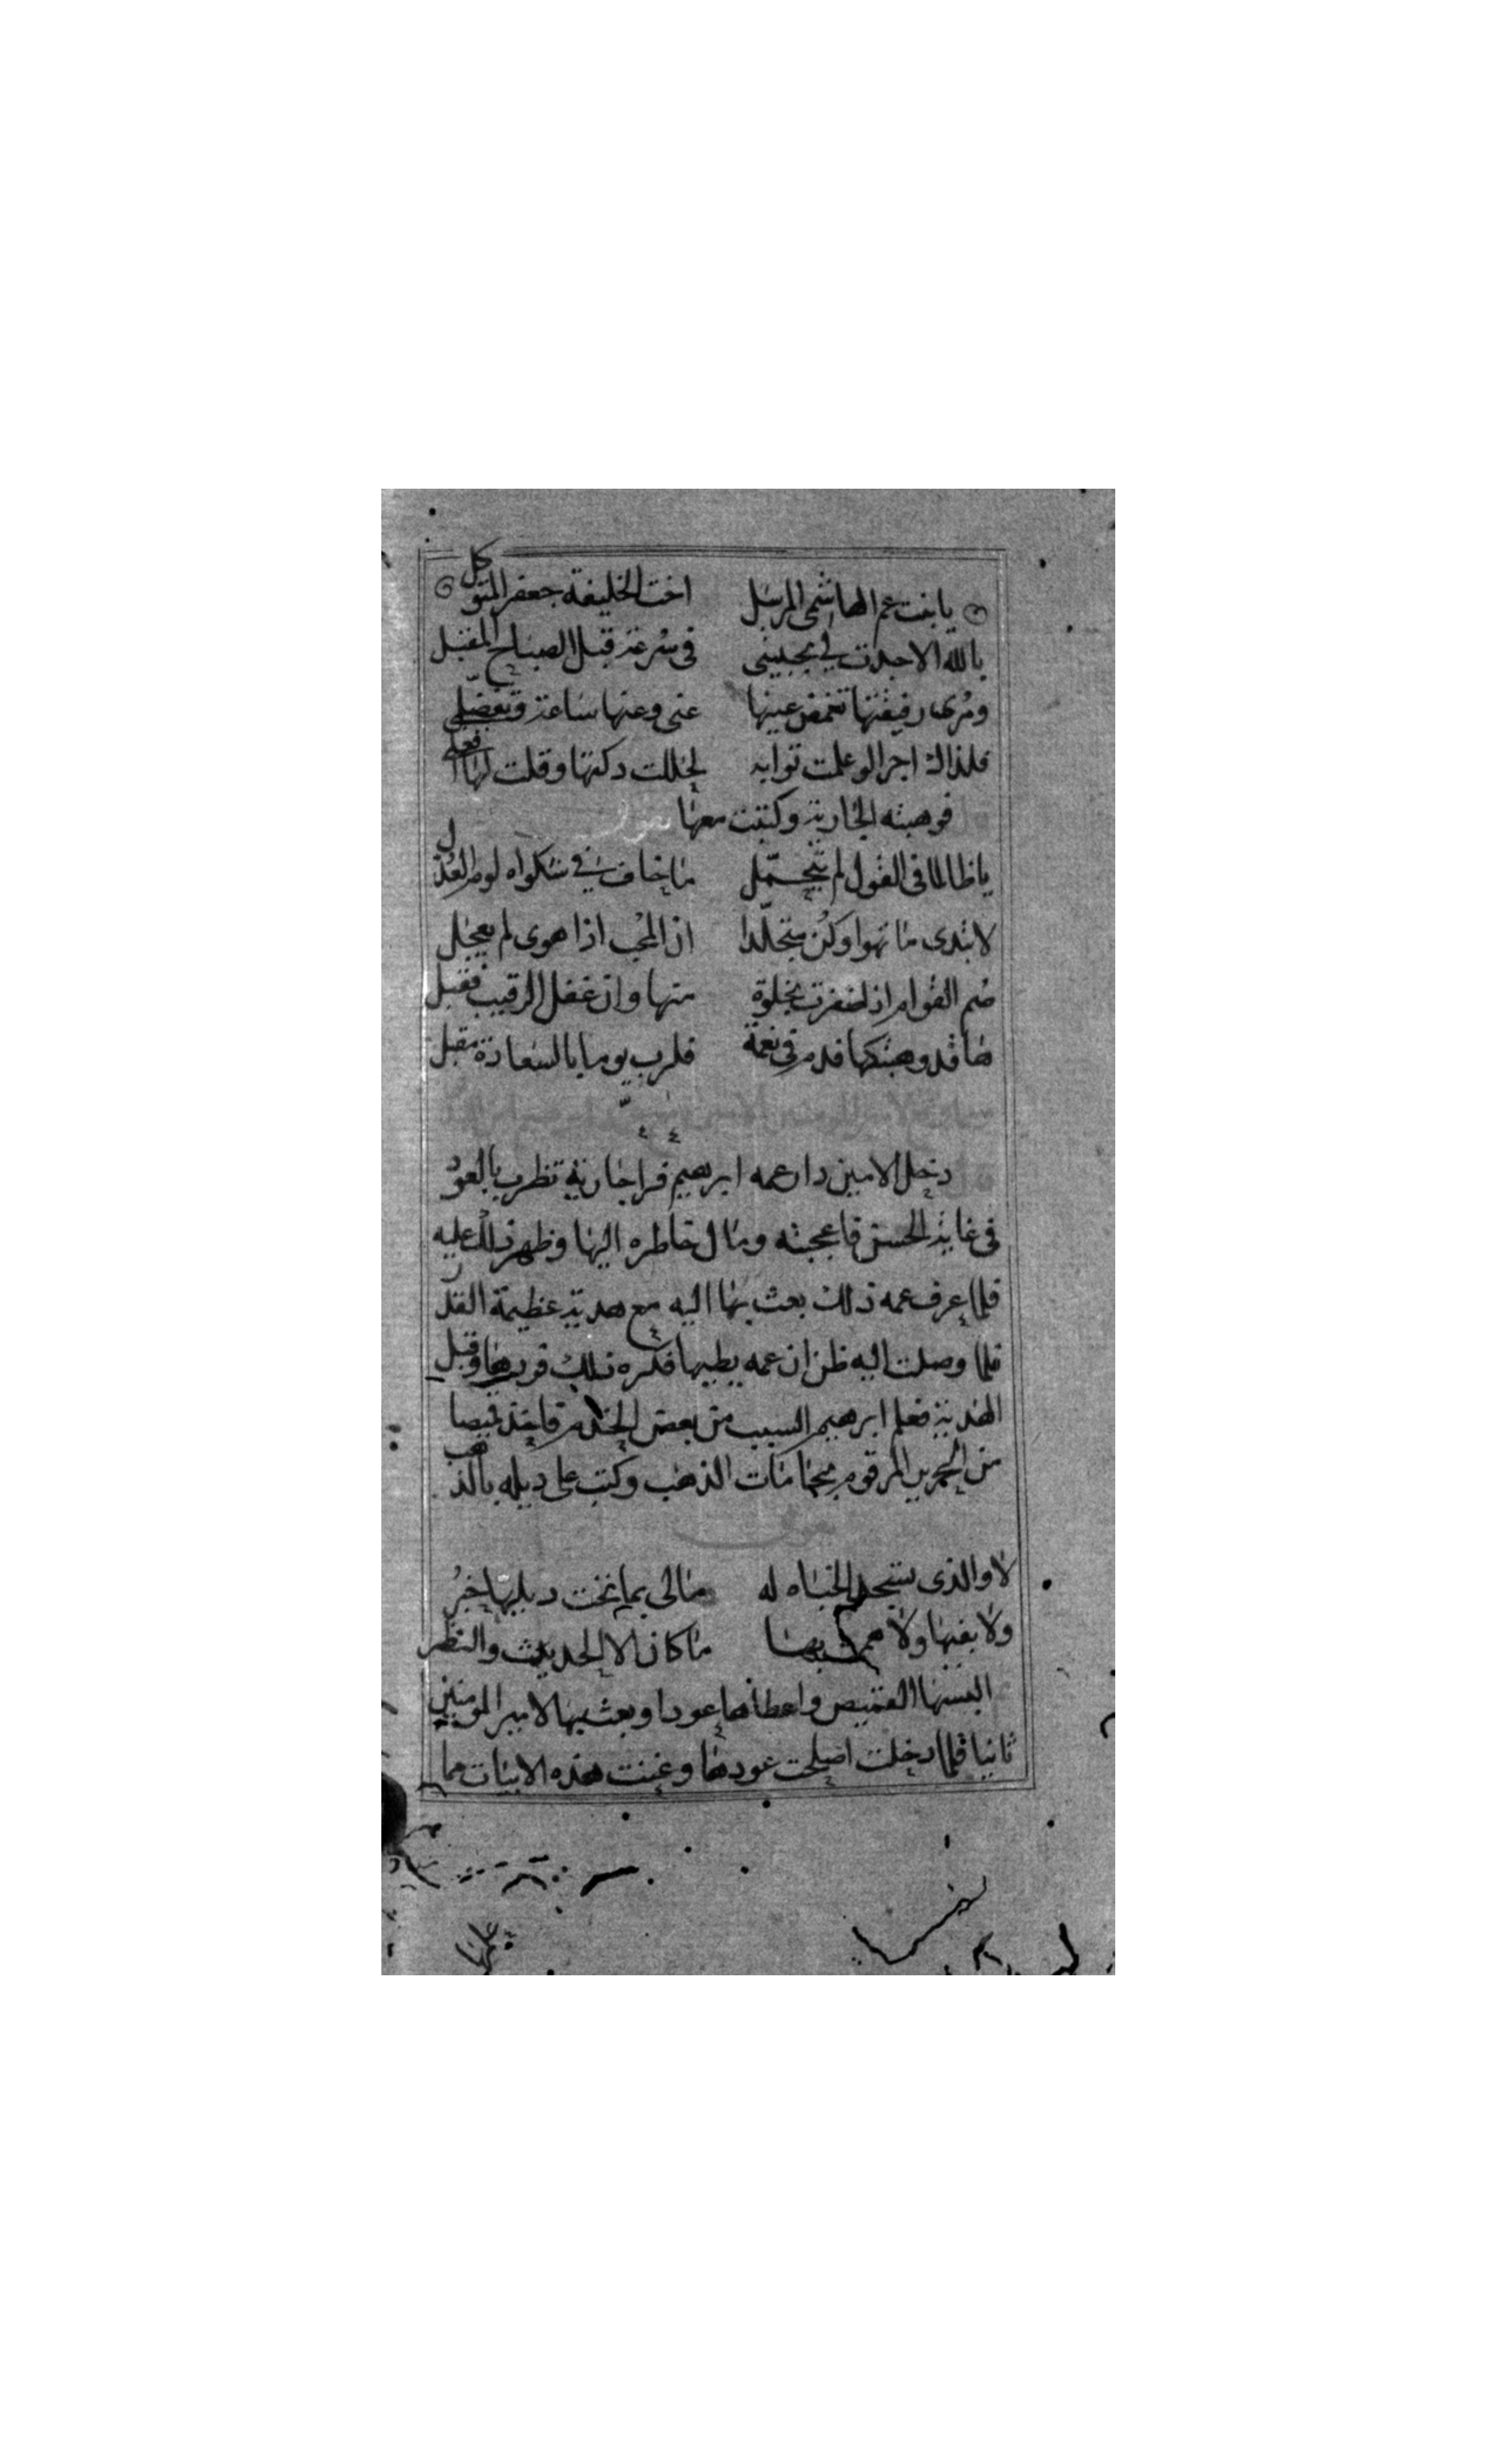 يا بنت عم الهاشمى المرسل اخت الخليفة جعفر المتوكل
بالله الا جدت لي بجبينى فى سرعة قبل الصباح المقبل
ومرى رفيقتها تغمض عينها عنى وعنها ساعة وتفضلى
فلذاك اجر لو علمت ثوابه لحللت دكتها وقلت لها افعلى
فوهبته الجارية وكتبت معها
يا ظالما فى القول لم تتجمل ما خاف فى شكواه لوم العذل
لا تبدى ما تهوا وكن متجلدا ان المحب اذا هوى لم يعجل
ضم القوام اذا ضفرت بخلوة منها وان غفل الرقيب فقبل
ها قد وهبتكها فدم فى نعمة فلرب يوما بالسعادة مقبل
دخل الامين دار عمه ابرهيم فراجارية تظرب بالعود
فى غاية الحسن فاعجبته ومال خاطره اليها وظهر ذلك عليه
فلما عرف عمه ذلك بعث بها اليه مع هدية عظيمة القدر
فلما وصلت اليه ظن ان عمه يطيها فكره ذلك فردها وقبل
الهدية فعلم ابرهيم السبب من بعض الخدم فاخذ قميصا
من الحرير المرقوم بجامات الذهب وكتب على ديله بالذهب
لا والذى تسجد الجباه له مالى بما تحت ديلها خبر
ولا بفيها ولا هممت بها ما كان الا الحديث والنظر
البسها القميص واعطاها عودا وبعث بها لامير المومنين
ثانيا فلما دخلت اصلحت عودها وغنت هذه الابيات مما